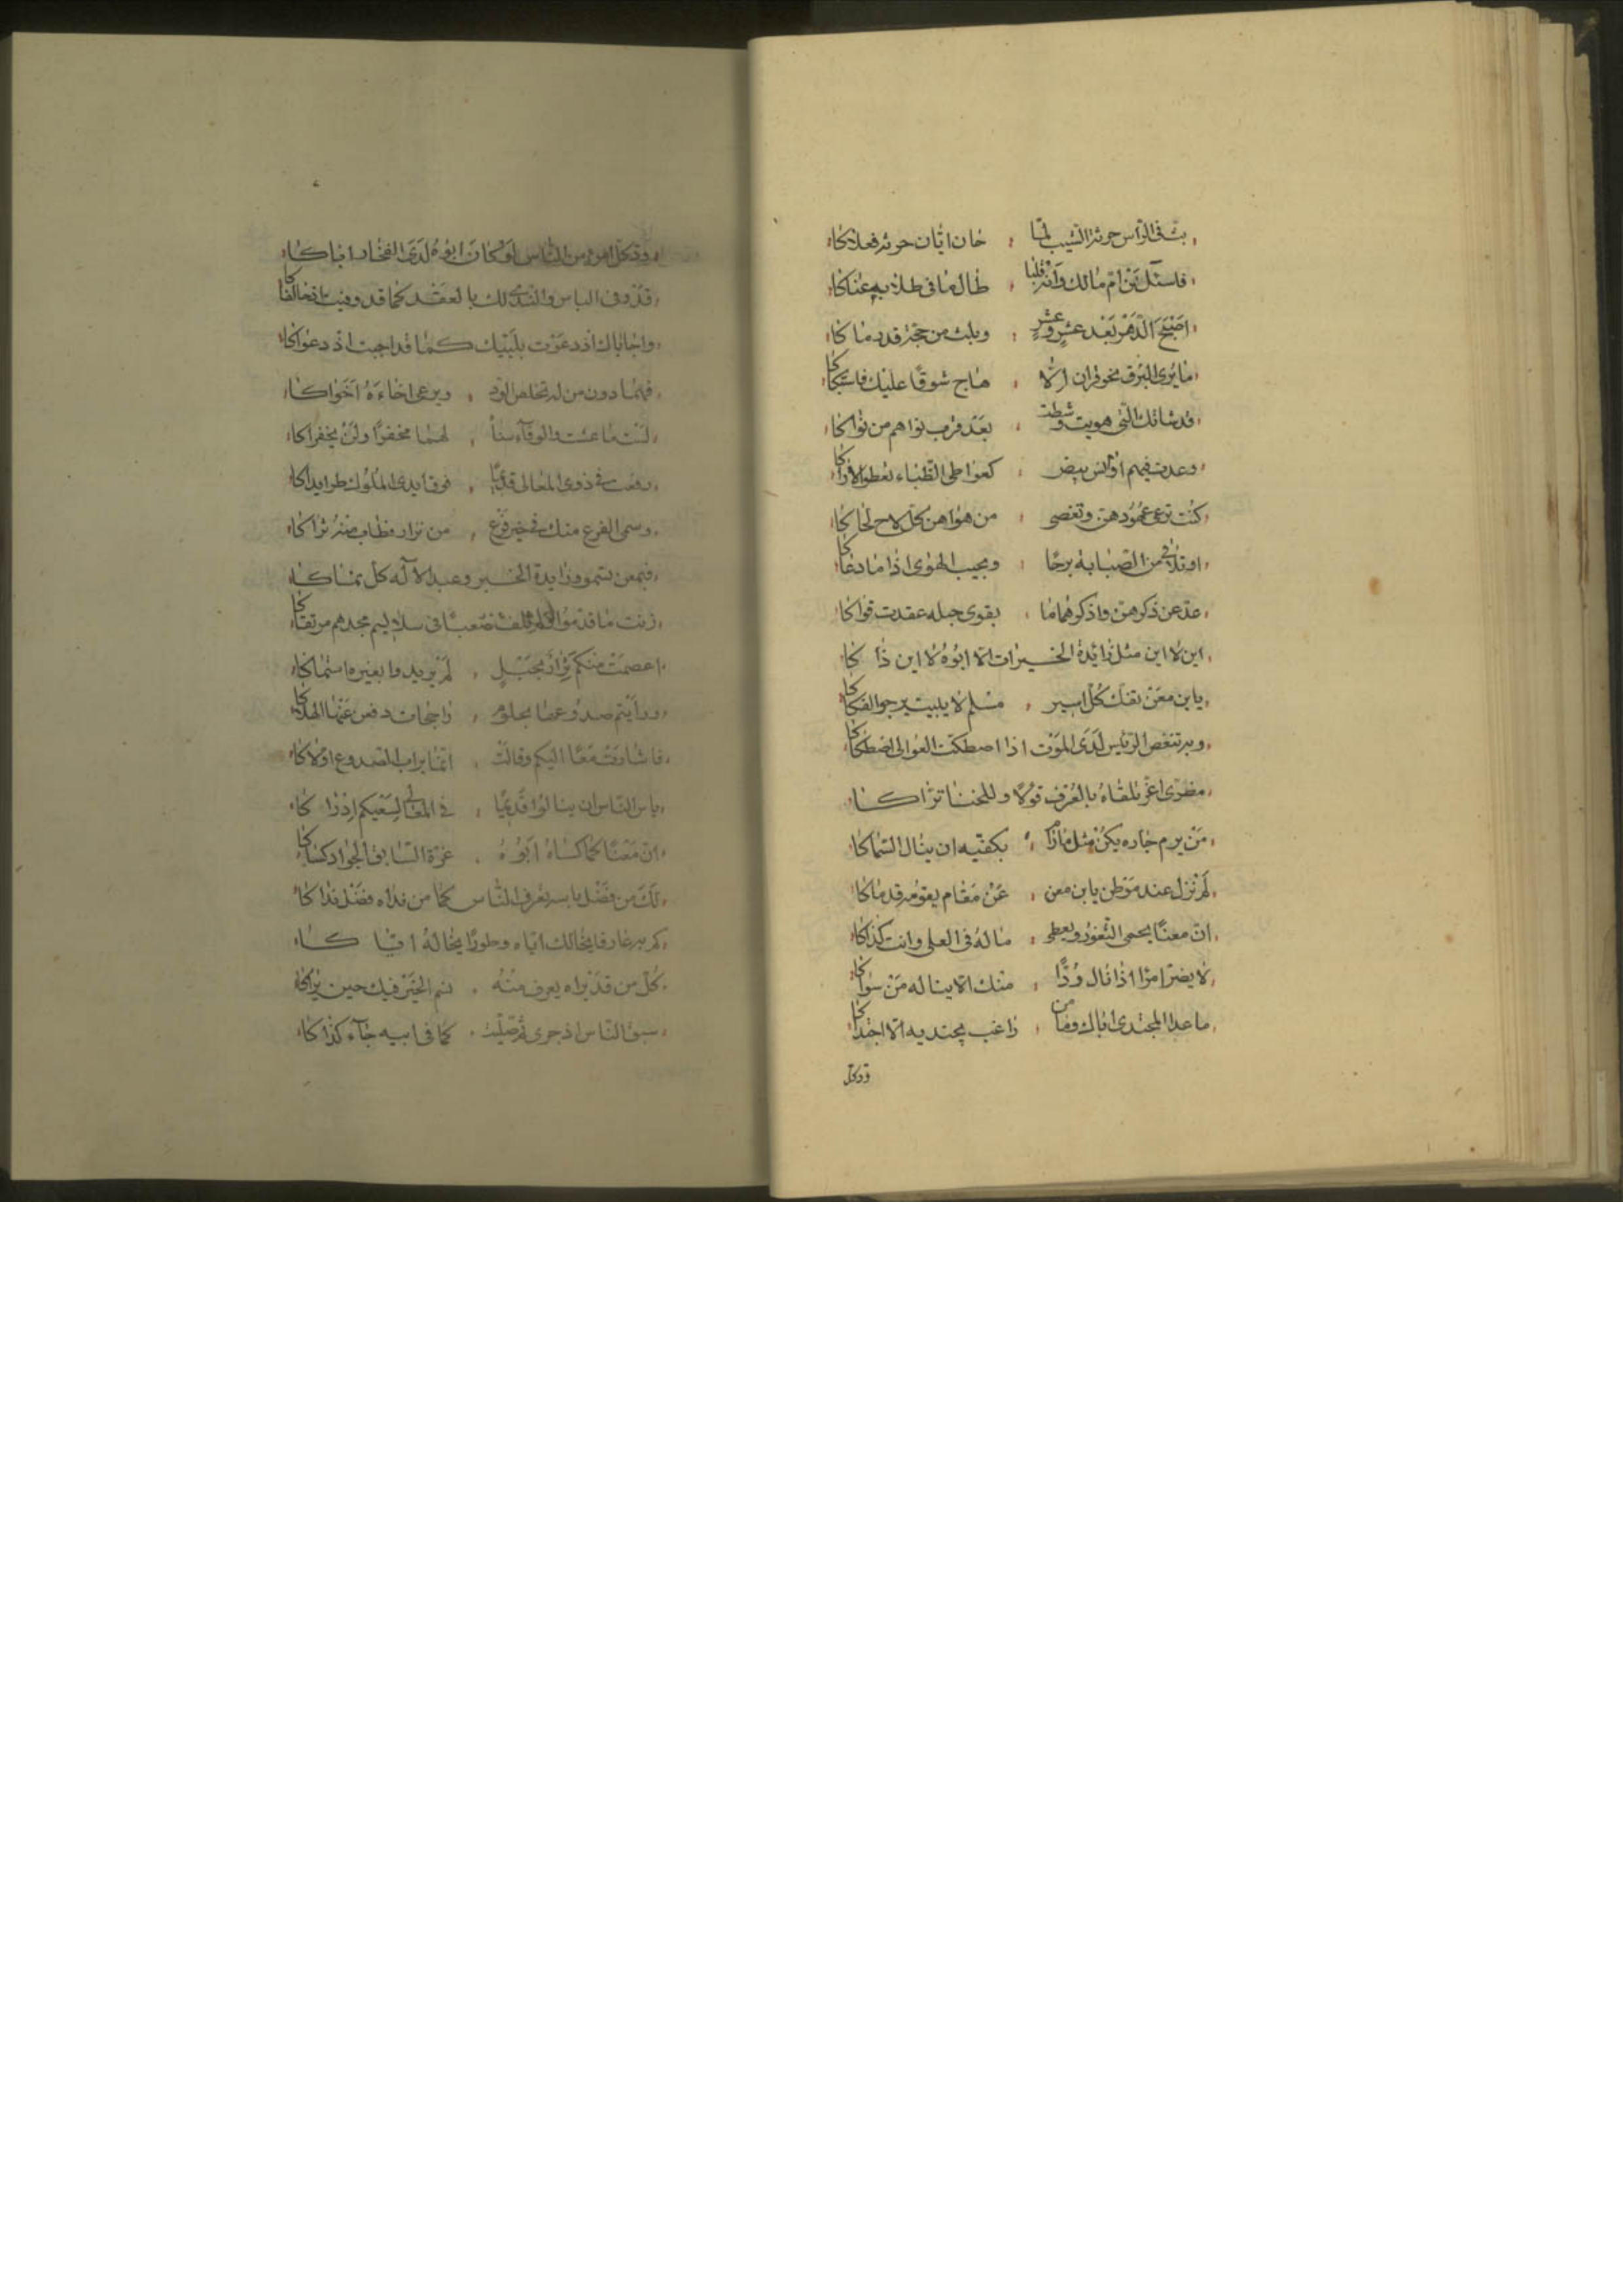 بث في الرأس حرثه الشيب لما خان ابان حرثه فعلاكا
فاسئل عن ام مالك وانه قلبا طال ما في طلابه عناكا
اصبح الدهر بعد عشر وعشر وثلث من حجة قد رماكا
ما يرى البرق نحو قران الا هاج شوقا عليك فاستبكاكا
قد شاتك التي هويت وشطت بعد قرب نواهم من نواكا
وغدت فيهم اوانس بيض كعواطي الظباء تعطو الاراكا
كنت ترعى عهودهن وتعصي من هواهن كل لاح لحاكا
او تلاقي من الصبابة برحا ويجيب الهوى اذا ما دعاكا
عد عن ذكرهن واذكر هماما بقوى حبله عقدت قواكا
اين لا اين مثل زائدة الخيرات الا ابوه لا اين ذاكا
يا بن معن تفك كل اسير مسلم لا يبيت يرجو الفكاكا
وبه تقعص الرئيس لدى الموت اذا اصطكت العوالي اصطكاكا
مطرى اغر تلقاه بالعرف قولا وللخنا تراكا
من يرم جاره يكن مثل ما رام بكفيه ان ينال السماكا
لم تزل عند موطن يا بن معن عن مقام يقومه قدماكا
ان معنا يحمي الثغور ويعطي ماله في العلى وانت كذاكا
لا يضر امرا اذا نال ودا منك الا يناله من سواكا
ما عدا المجتدي اباك وما من راغب يجتديه الا اجتداكا
ود كل
ود كل امرء من الناس لو كان ابوه لدى الفخار اباكا
قد وفى الباس والندى لك بالعقد كما قد وفيت اذ حالفاكا
واجاباك اذ دعوت بلبيك كما قد اجبت اذ دعواكا
فهما دون من له تخلص الود ويرعى اخاءه اخواكا
لست ما عشت والوفاء سناء لهما مخفرا ولن يخفراكا
رفعت في ذوي المعالي قديما فوق ايدي الملوك طرا يداكا
وسمى الفرع منك في خير فرع من نزار فطاب منه ثراكا
فبمعن تسمو وزايدة الخير وعبد الاله كل نماكا
زينت ما قدموا صعبا في سلاليم مجدهم مرتقاكا
اعصمت منكم نزار بحبل لم يريدوا بغيره استمساكا
ورأيتم صدوعها بحلوم راجحات دفعن عنها الهلاكا
فاشارت معا اليكم وقالت انما يراب الصدوع اولاكا
يأس الناس ان ينالوا قديما في المعالي لسعيكم ادراكا
ان معنا كما كساه ابوه عزة السابق الجواد كساكا
لك من فضل باسه يعرف الناس كما من نداه فضل نداكا
كم به عارفا يخالك اياه وطورا يخاله اياكا
كل من قد يراه يعرف منه شيم الخير فيك حين يراكا
سبق الناس اذ جرى ثم صليت كما في ابيه جاء كذاكا